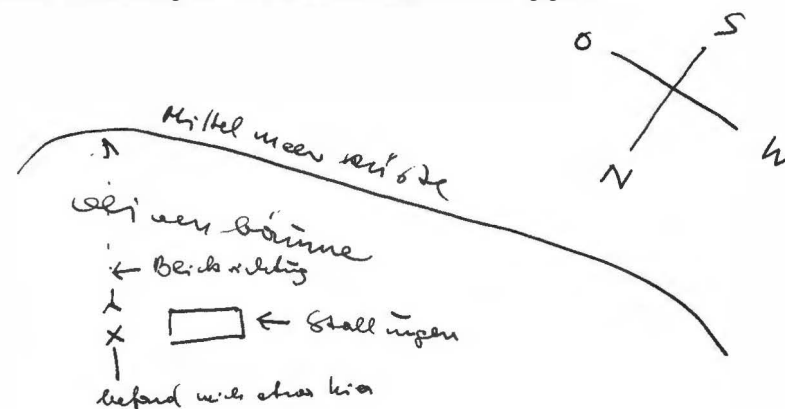 S
O
Mittelmeerküste
W
N
Olivenbäume
← Blickrichtung
← Stallungen
befand mich etwa hier